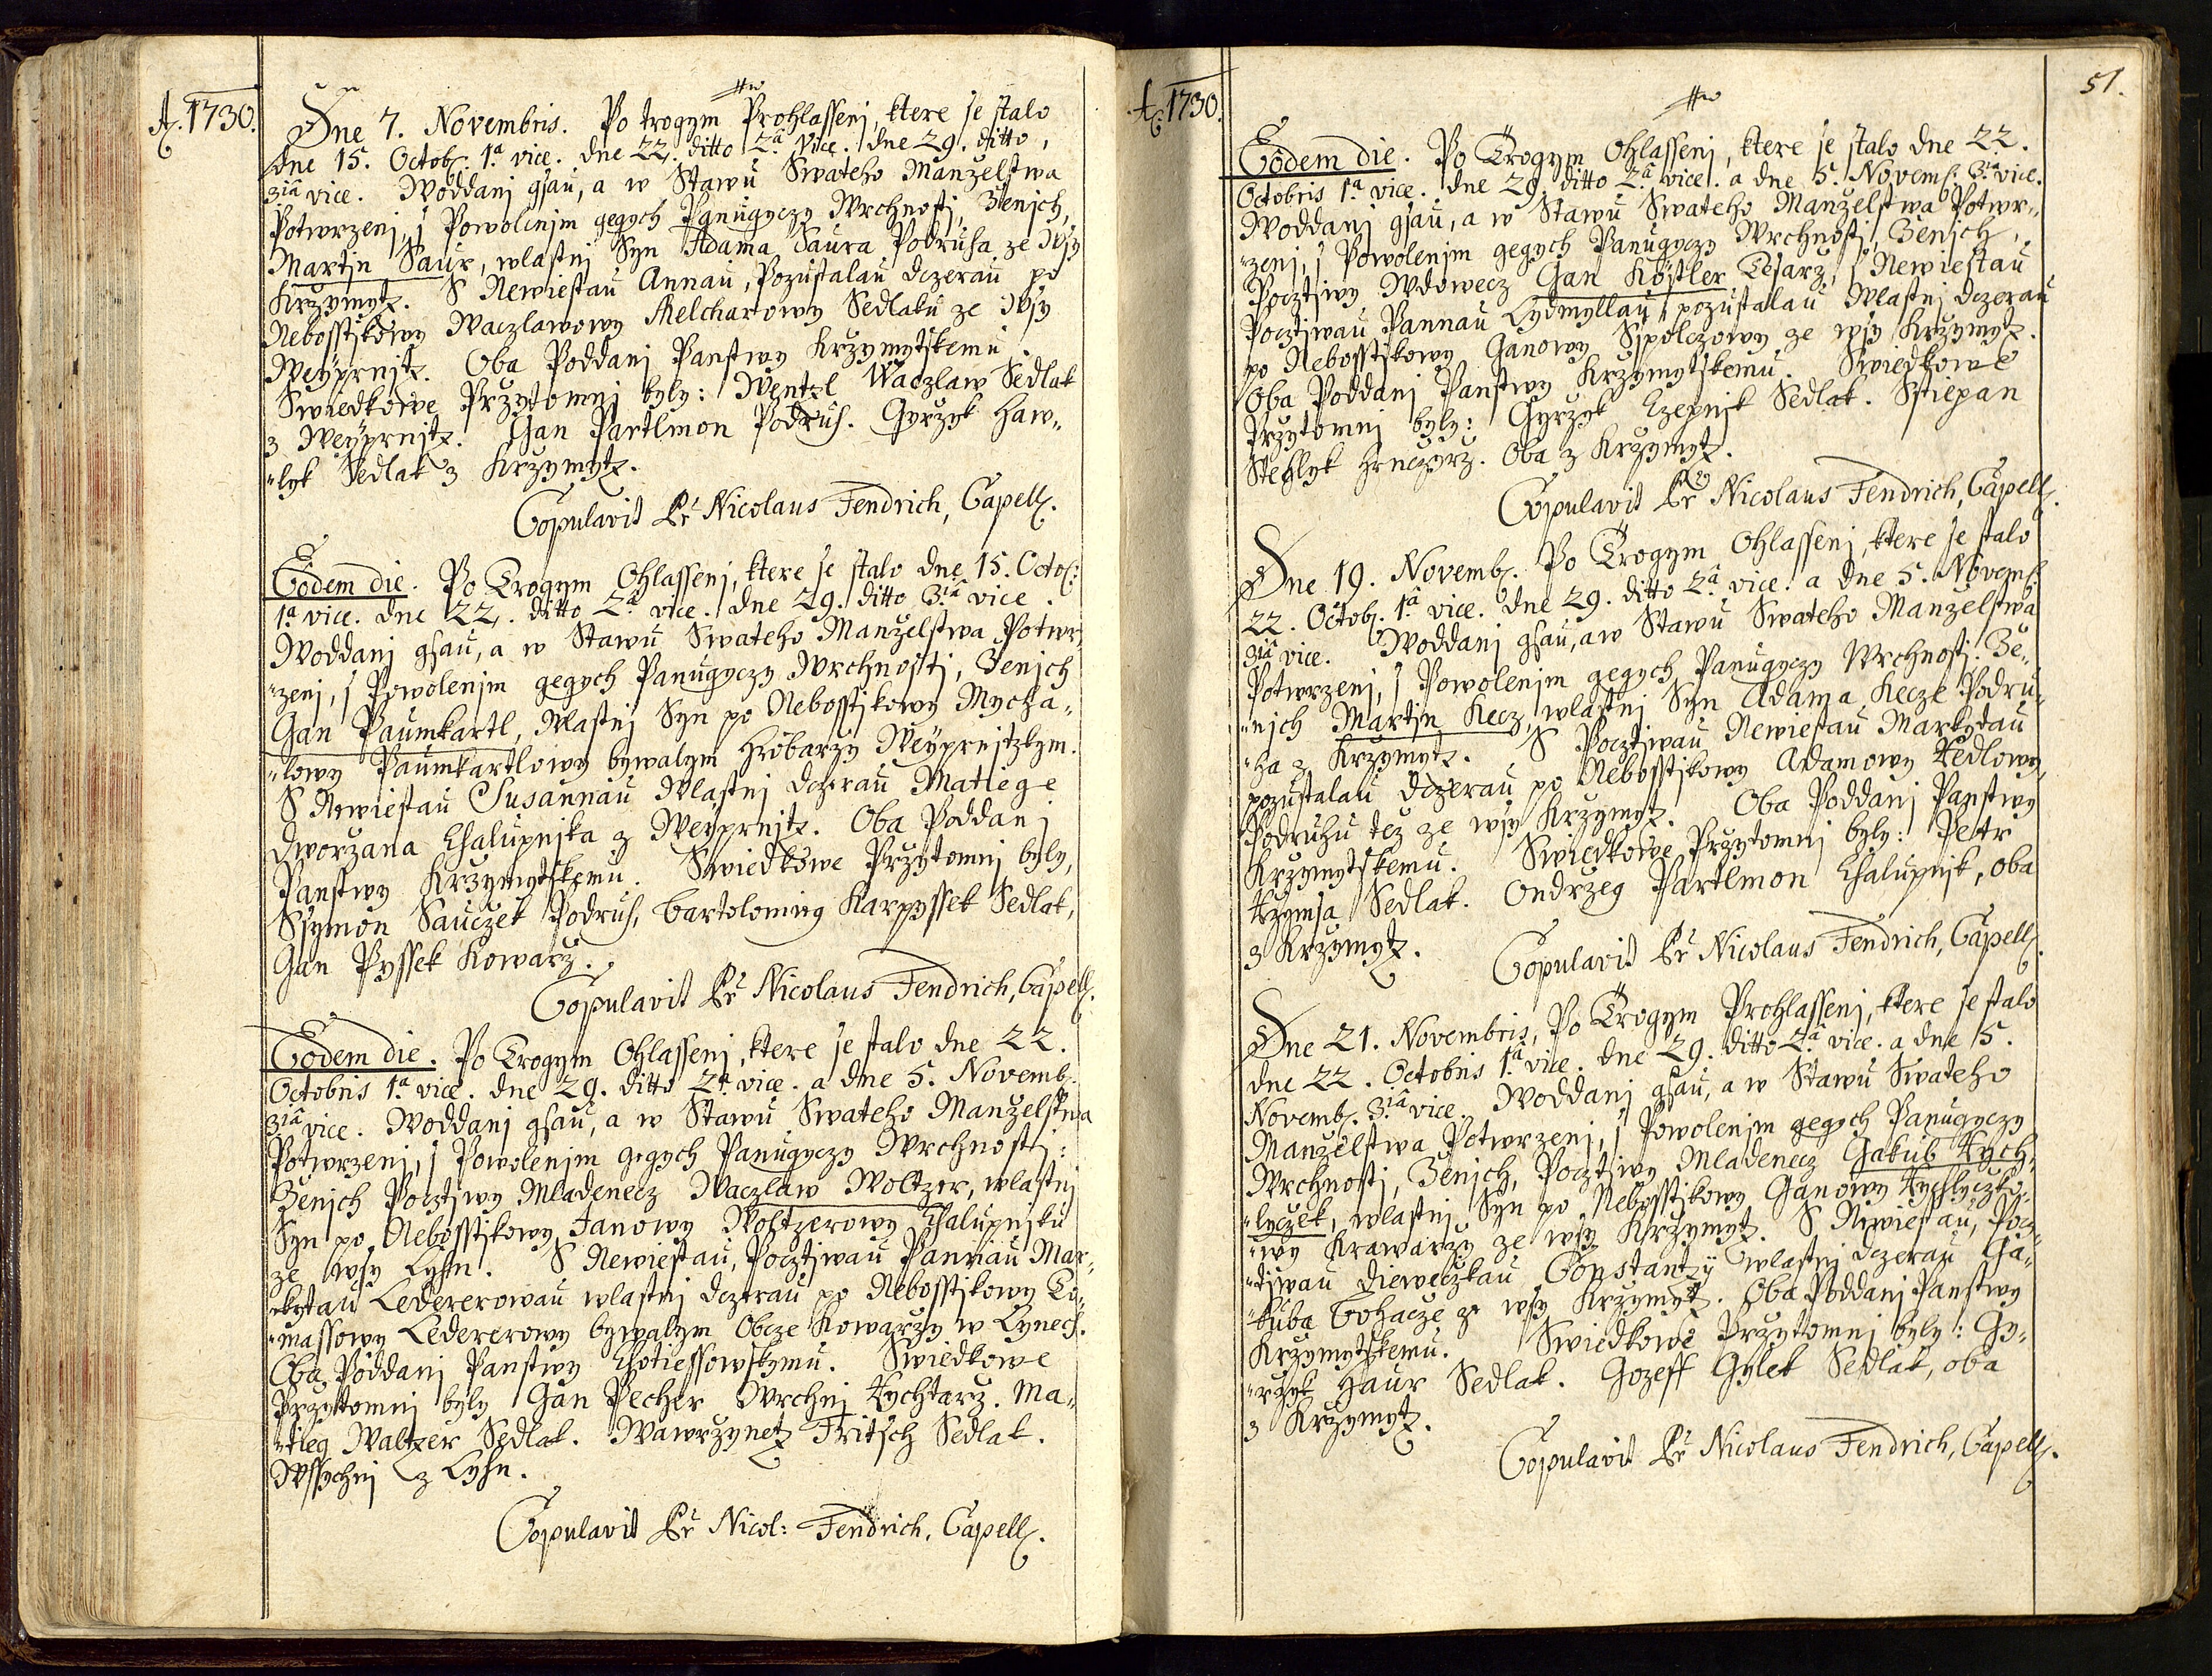 A. 1730.
Dne 7. Novembris. Po trogym Prohlassenj, ktere se stalo
dne 15. Octob. 1.a vice. dne 22. ditto 2.a vice. dne 29. ditto,
3ia vice. Woddanj gsau, a w Stawu Swateho Manzelstwa
Potwrzenj, s Powolenjm gegych Panugyczy Wrchnosti, Zenjch,
Martjn Saur, wlastnj Syn Adama Saura Podruha ze Wsy
Krzymytz. S Newiestau Annau, Pozustalau dczerau po
Nebosstjkowy Waczlawowy Melcharowy Sedlaku ze Wsy
Weyprnitz. Oba Poddanj Panstwy Krzymytskemu.
Swiedkowe Przytomnj byly: Wentzl Waczlaw Sedlak
z Weyprnitz. Gan Partlmon Podruh. Gyrzyk Haw-
-lyk Sedlak z Krzymytz.
Copulavit Pr Nicolaus Fendrich, Capell.
Eodem die. Po Trogym Ohlassenj, ktere se stalo dne 15. Octob:
1.a vice. dne 22. ditto 2.a vice. dne 29. ditto 3.ia vice.
Woddanj gsau, a w Stawu Swateho Manzelstwa Potwr-
-zenj, s Powolenjm gegych Panugyczy Wrchnosti, Zenjch
Gan Paumkartl, Wlastnj Syn po Nebosstjkowy Mycha-
-lowy Paumkartlowy bywalym Hrobarzy Weyprnitzkym.
S Newiestau Susannau Wlastnj dczerau Matiege
Dworzana Chalupnjka z Weyprnitz. Oba Poddanj
Panstwy Krzymytskemu. Swiedkowe Przytomnj byly,
Ssymon Sauczek Podruh, Bartolomieg Karpyssek Sedlak,
Gan Pyssek Kowarz.
Copulavit Pr Nicolaus Fendrich, Capell.
Eodem die. Po Trogym Ohlassenj, ktere se stalo dne 22.
Octobris 1.a vice. dne 29. ditto 2.a vice. a dne 5. Novemb.
3ia vice. Woddanj gsau, a w Stawu Swateho Manzelstwa
Potwrzenj, s Powolenjm gegych Panugyczy Wrchnosti:
Zenjch Pocztjwy Mladenecz Waczlaw Woltzer, wlastnj
Syn po Nebosstjkowy Janowy Woltzerowy Chalupnjku
ze wsy Lyhn. S Newiestau, Pocztjwau Pannau Mar-
-kytau Ledererowau wlastnj dczerau po Nebosstjkowy To-
-massowy Ledererowy bywalym Obcze Kowarzy w Lynech.
Oba Poddanj Panstwy Chotiessowskymu. Swiedkowe
Przytomnj byly Gan Pecher Wrchnj Rychtarz. Ma-
-tieg Waltzer Sedlak. Wawrzynetz Fritsch Sedlak.
Wssychnj z Lyhn.
Copulavit Pr Nicol: Fendrich, Capell.
A. 1730.
51.
Eodem die. Po Trogym Ohlassenj, ktere se stalo dne 22.
Octobris 1.a vice. dne 29. ditto 2.a vice. a dne 5. Novemb. 3.ia vice.
Woddanj gsau, a w Stawu Swateho Manzelstwa Potwr-
-zenj, s Powolenjm gegych Panugyczy Wrchnosti, Zenjch,
Pocztjwy Wdowecz Gan Köstler Tesarz, s Newiestau
Pocztjwau Pannau Lydmyllau, pozustalau Wlastnj dczerau
po Nebosstjkowy Ganowy Sspolczowy ze wsy Krzymytz.
Oba Poddanj Panstwy Krzymytskemu. Swiedkowe
Przytomnj byly: Gyrzyk Czepnjk Sedlak. Sstiepan
Stehlyk Hrnczyrz. Oba z Krzymytz.
Copulavit Pr Nicolaus Fendrich, Capell.
Dne 19. Novemb. Po Trogym Ohlassenj, ktere se stalo
22. Octob. 1.a vice. dne 29. ditto 2.a vice. a dne 5. Novemb.
3ia vice. Woddanj gsau, a w Stawu Swateho Manzelstwa
Potwrzenj, s Powolenjm gegych Panugyczy Wrchnosti. Ze-
-njch Martjn Kecz, wlastnj Syn Adama Kecze Podru-
-ha z Krzymytz. S Pocztjwau Newiestau Markydau
pozustalau dczerau po Nebosstjkowy Adamowy Hedlowy,
Podruhu tez ze wsy Krzymytz. Oba Poddanj Panstwy
Krzymytskemu. Swiedkowe Przytomnj byly: Petr
Krymsa Sedlak. Ondrzeg Partlmon Chalupnjk, oba
z Krzymytz.
Copulavit Pr Nicolaus Fendrich, Capell.
Dne 21. Novembris, Po Trogym Prohlassenj, ktere se stalo
dne 22. Octobris 1.a vice. dne 29. ditto 2.a vice. a dne 5.
Novemb. 3.ia vice. Woddanj gsau, a w Stawu Swateho
Manzelstwa Potwrzenj, s Powolenjm gegych Panugyczy
Wrchnosti, Zenjch, Pocztjwy Mladenecz Gakub Rych-
-lyczek, wlastnj Syn po Nebosstjkowy Ganowy Rychlyczko-
-wy Krawarzy ze wsy Krzymytz. S Newiestau, Pocz-
-tjwau dieweczkau Constantÿ wlastnj dczerau Ga-
-kuba Bohacze ze wsy Krzymytz. Oba Poddanj Panstwy
Krzymytskemu. Swiedkowe Przytomnj byly: Gy-
-rzyk Haur Sedlak. Gozeff Gylek Sedlak, oba
z Krzymytz.
Copulavit Pr Nicolaus Fendrich, Capell.